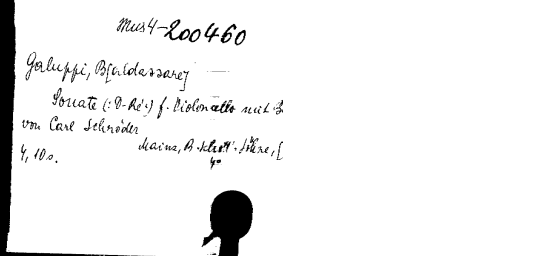 Mus4-200460
Galuppi, B[aldassare]
Sonate (: D-Ré :) f. Violoncello mit
von Carl Schröder
Mainz, B. Schott's Söhne, [
4, 10 s. 4°